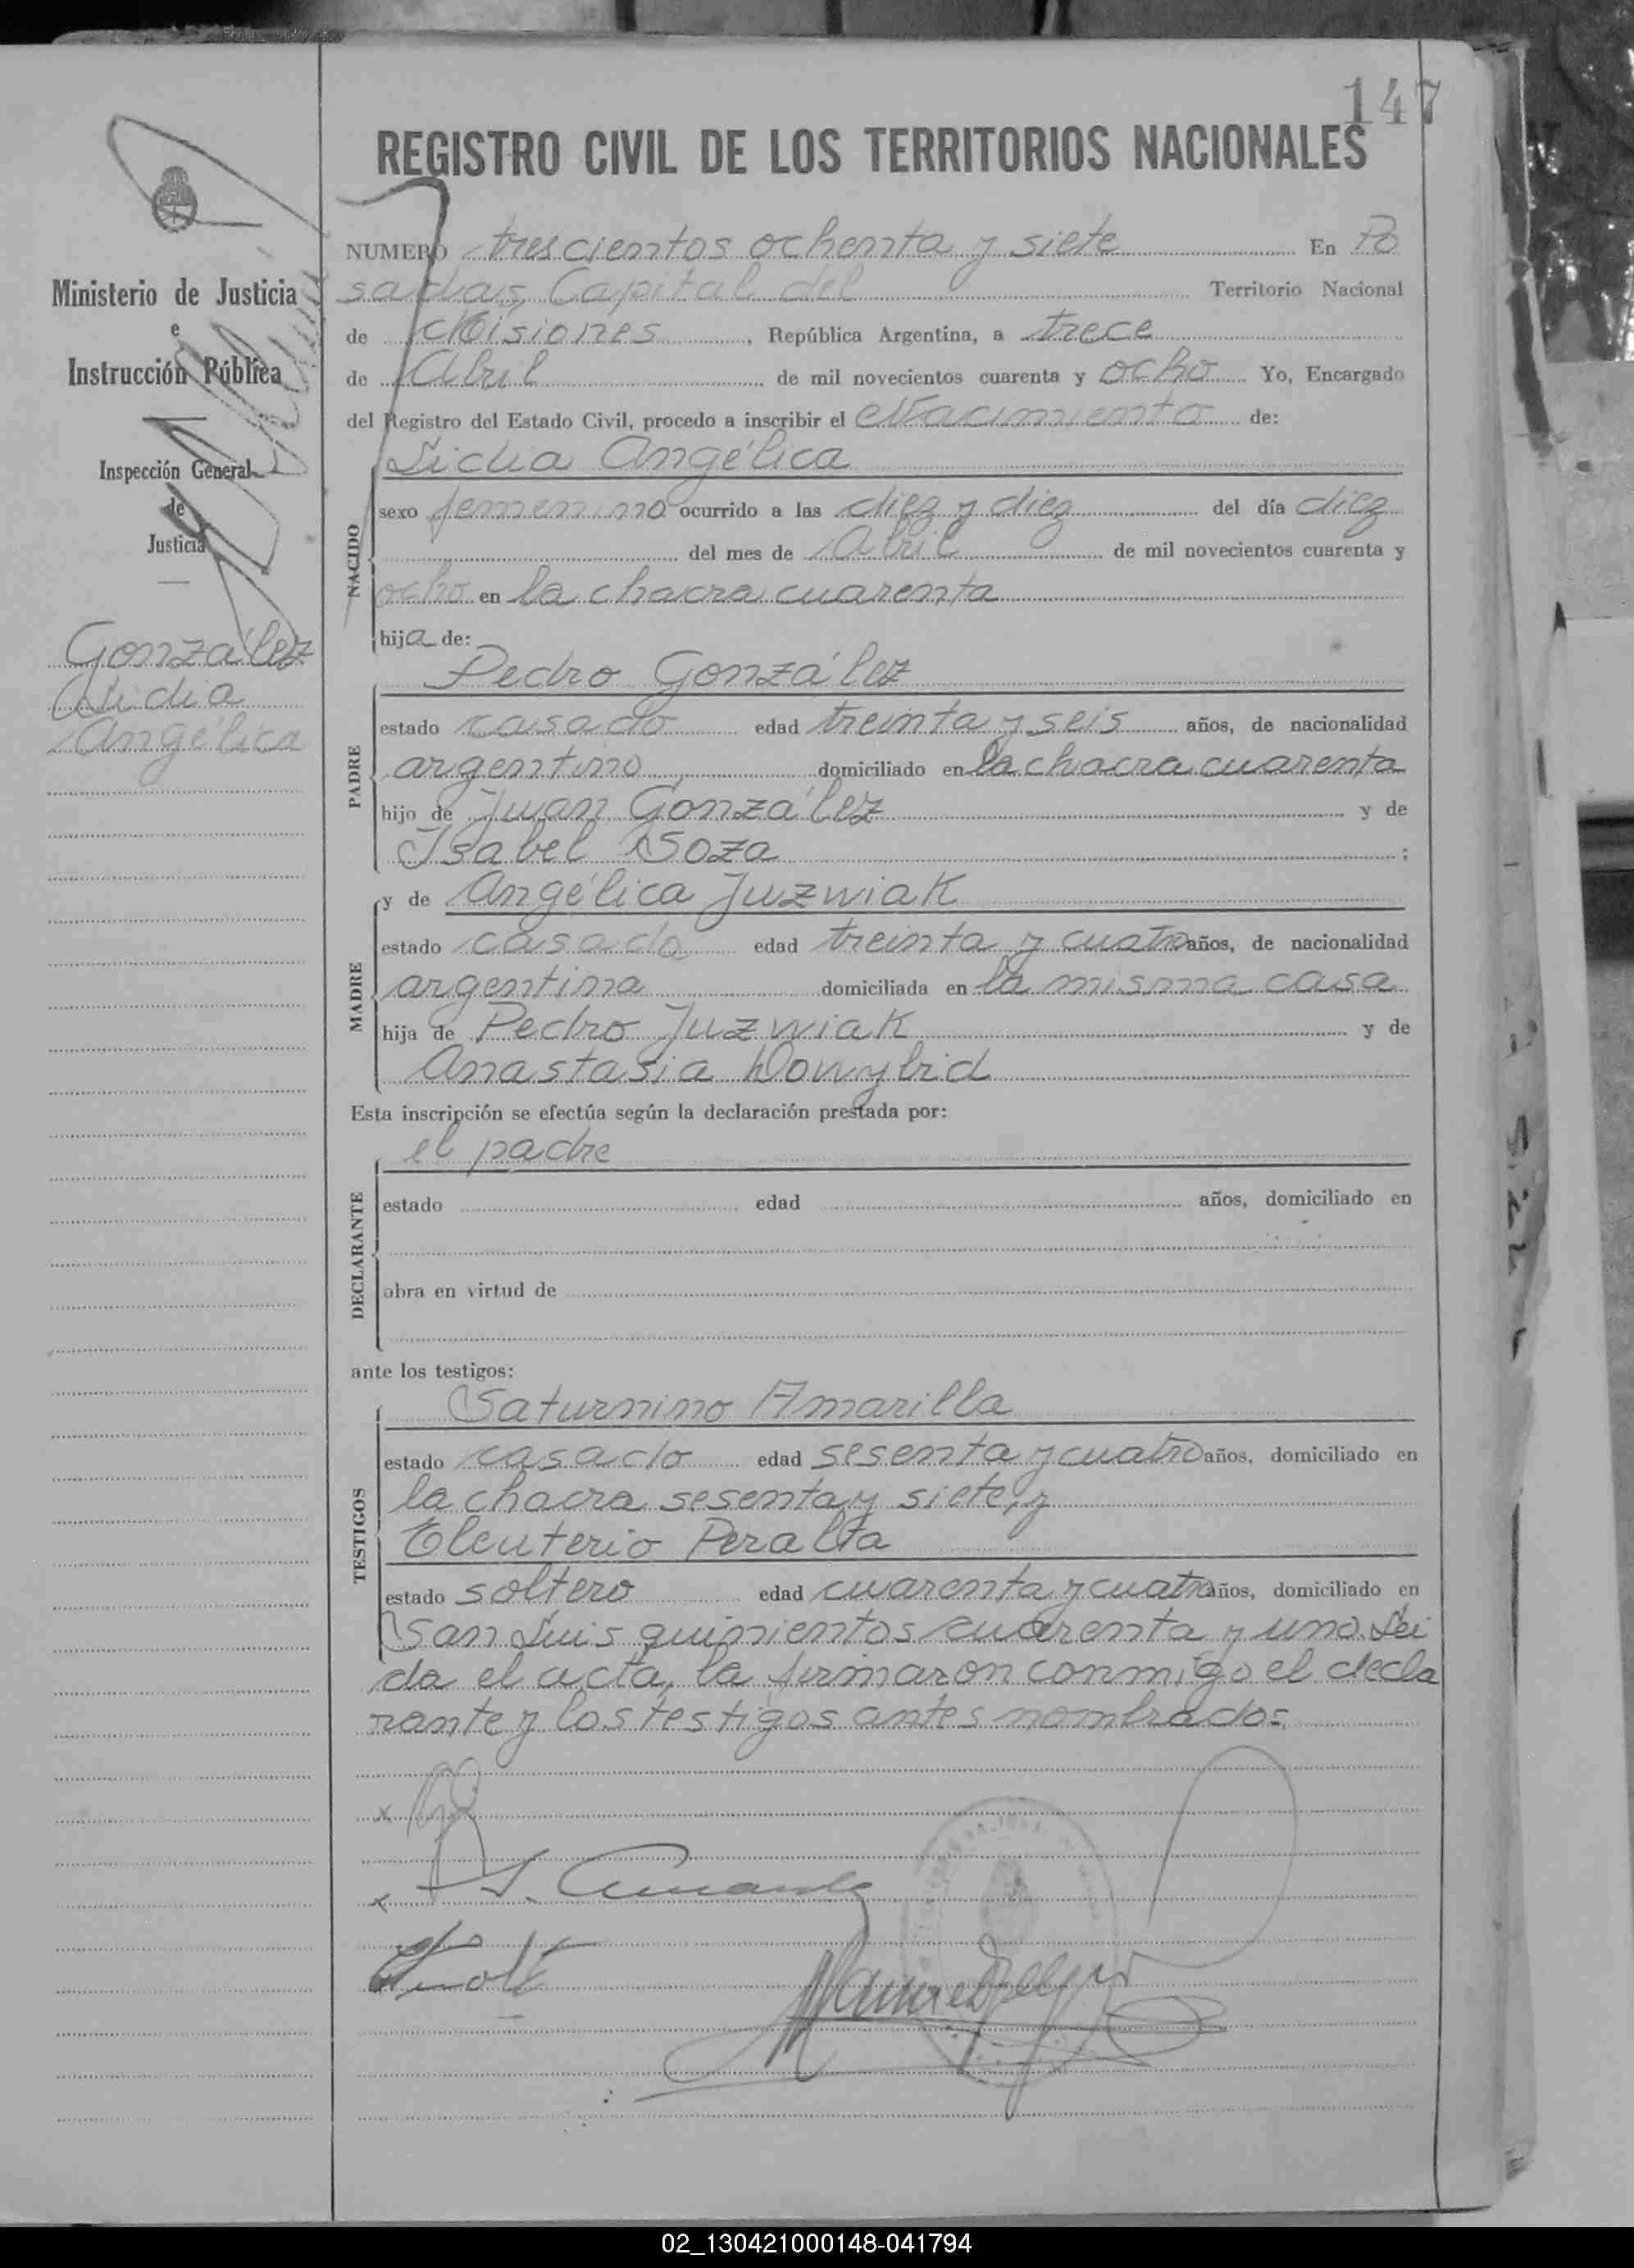 147
REGISTRO CIVIL DE LOS TERRITORIOS NACIONALES
Ministerio de Justicia
e
Instrucción Pública
Inspección General
de
Justicia
González
Lidia
Angélica
NUMERO trescientos ochenta y siete En Po
sadas, Capital del Territorio Nacional
de Misiones, República Argentina, a trece
de Abril de mil novecientos cuarenta y ocho Yo, Encargado
del Registro del Estado Civil, procedo a inscribir el Nacimiento de:
NACIDO
Lidia Angélica
sexo femenino ocurrido a las diez y diez del día diez
del mes de Abril de mil novecientos cuarenta y
ocho en la chacra cuarenta
hija de:
PADRE
Pedro González
estado casado edad treinta y seis años, de nacionalidad
argentino domiciliado en la chacra cuarenta
hijo de Juan González y de
Isabel Soza ;
MADRE
y de Angélica Juzwiak
estado casada edad treinta y cuatro años, de nacionalidad
argentina domiciliada en la misma casa
hija de Pedro Juzwiak y de
Anastasia
Esta inscripción se efectúa según la declaración prestada por:
DECLARANTE
el padre
estado edad años, domiciliado en
obra en virtud de
ante los testigos:
TESTIGOS
Saturnino Amarilla
estado casado edad sesenta y cuatro años, domiciliado en
la chacra sesenta y siete, y
Eleuterio Peralta
estado soltero edad cuarenta y cuatro años, domiciliado en
San Luis quinientos cuarenta y uno. Lei
da el acta, la firmaron conmigo el decla
rante y los testigos antes nombrados
02_130421000148-041794